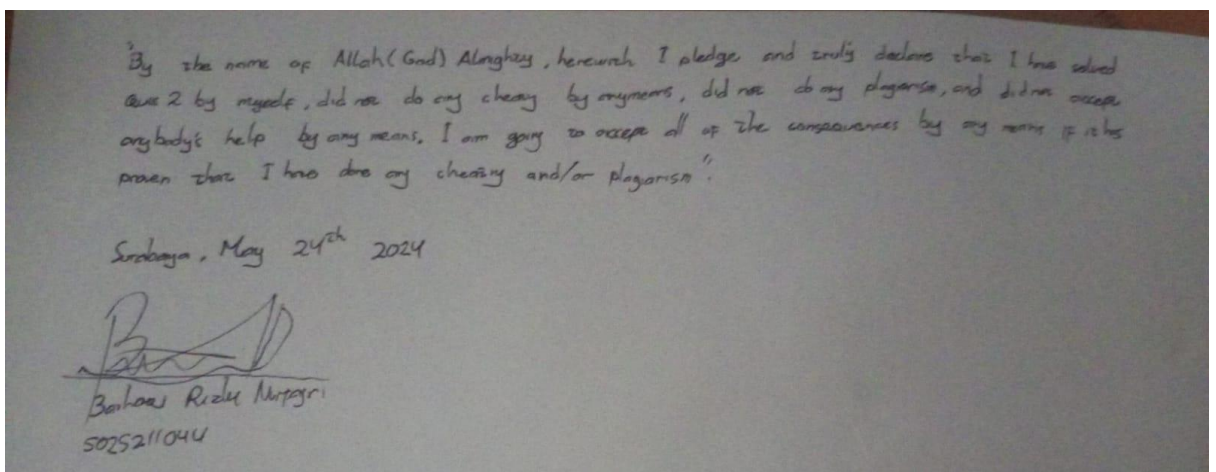 "By the name of Allah (God) Almighty, herewith I pledge and truly declare that I have solved
Quiz 2 by myself, did not do any cheating by any means, did not do any plagiarism, and did not accept
anybody's help by any means. I am going to accept all of the consequences by any means if it has
proven that I have done any cheating and/or plagiarism".
Surabaya, May 24th 2024
Rizki
5025211044